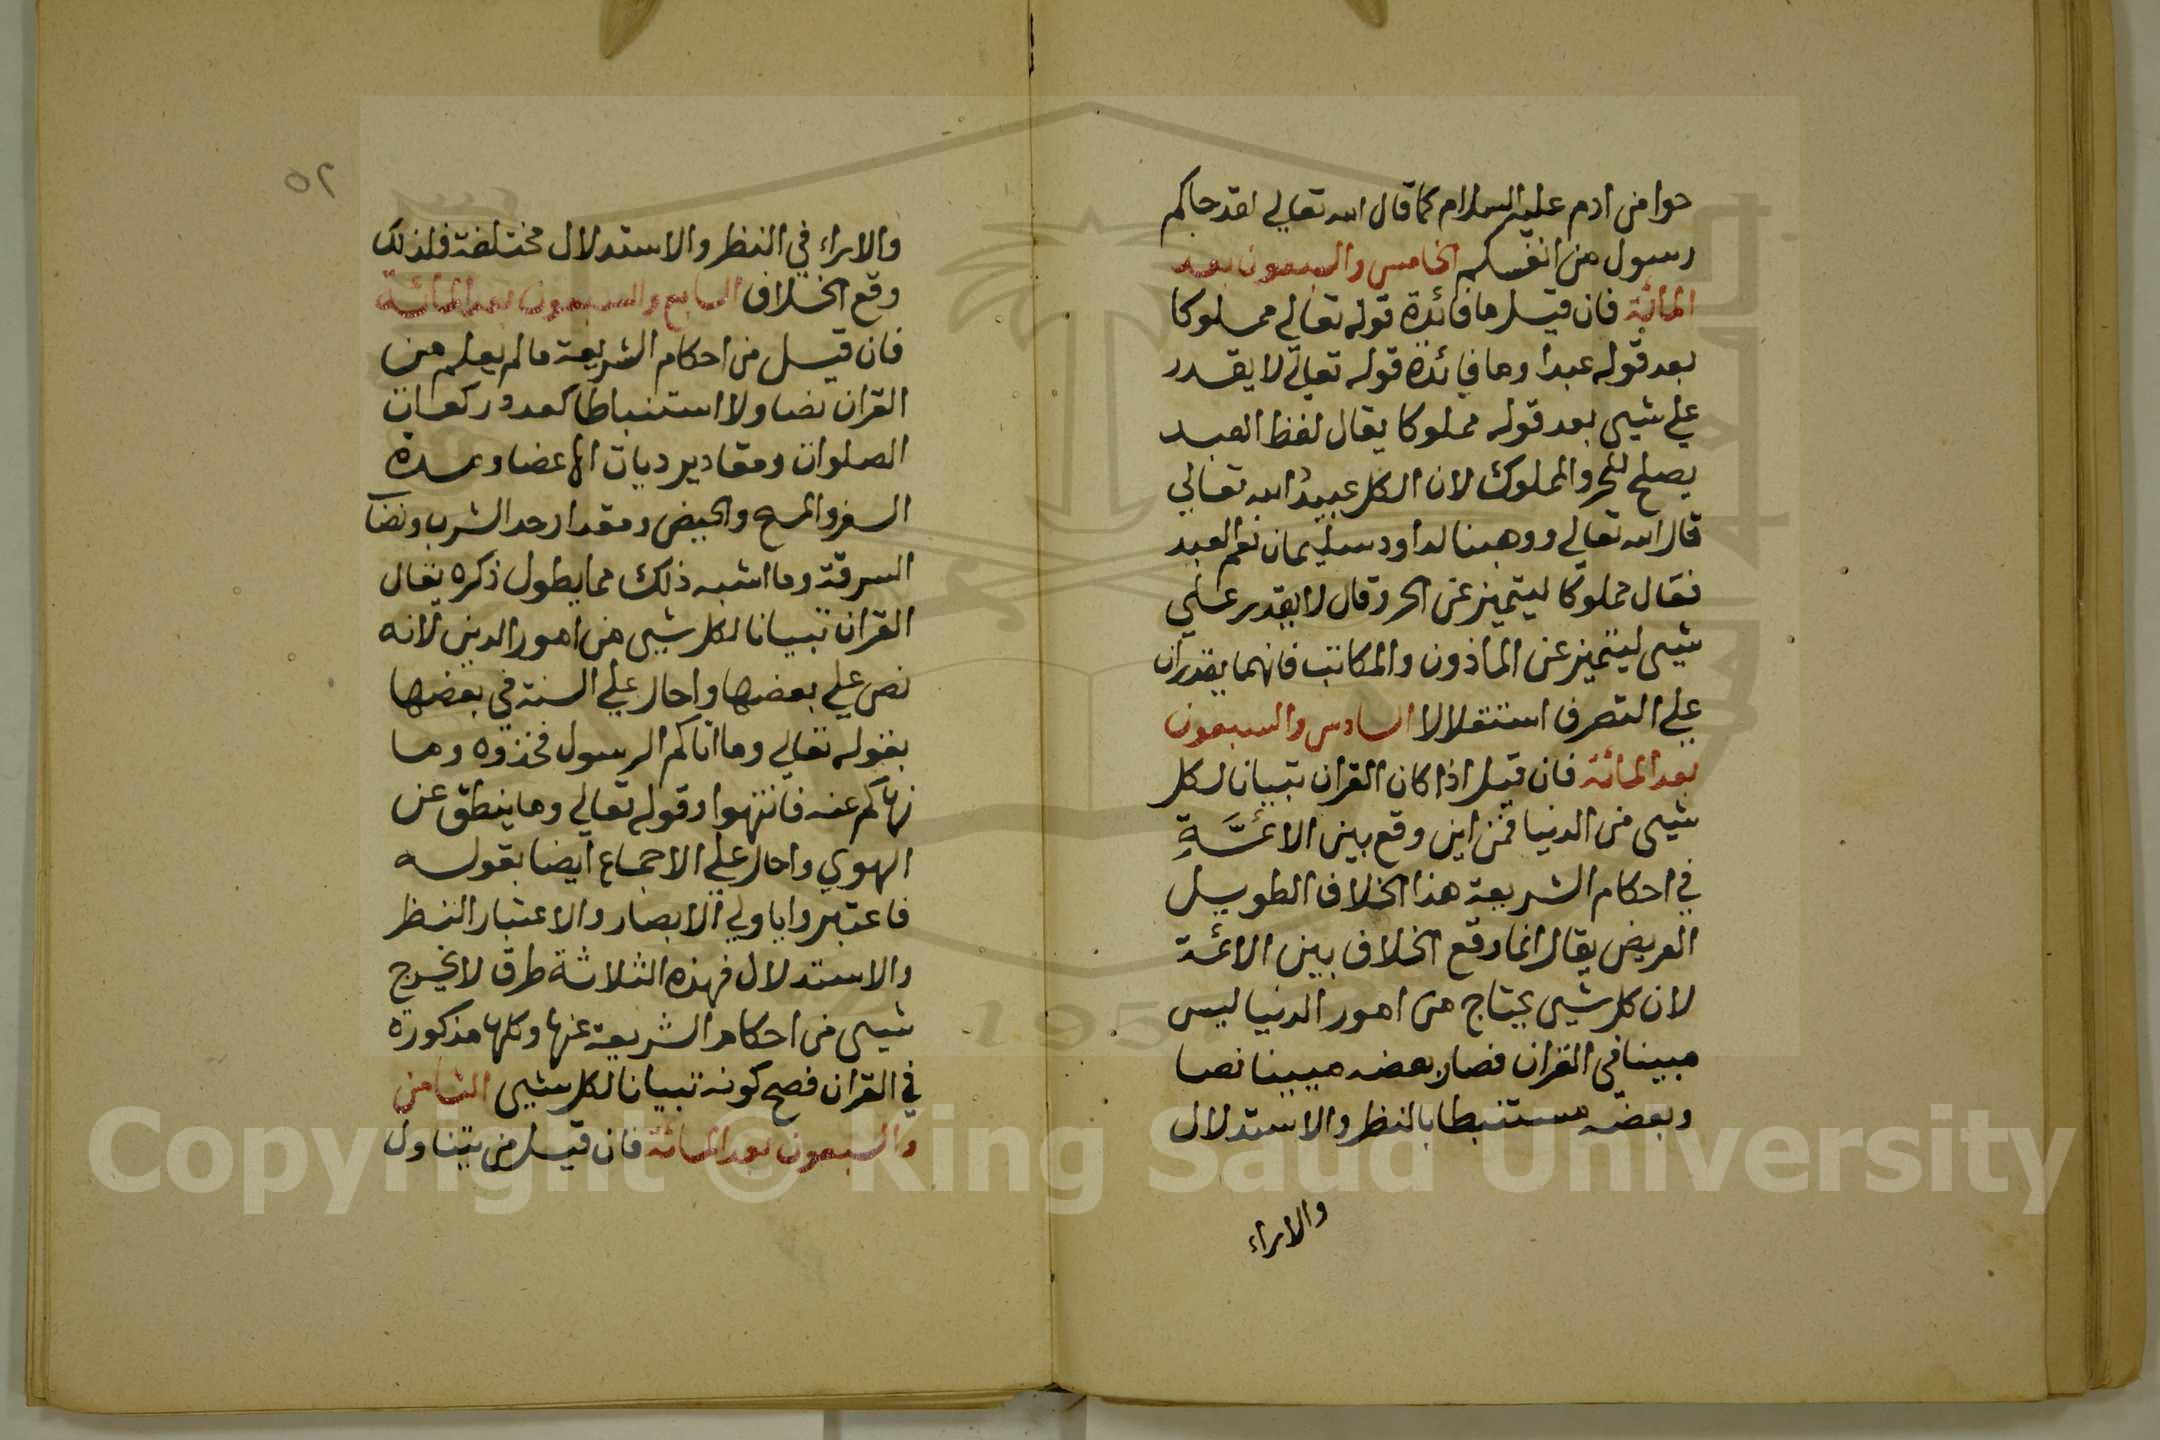 حوا من ادم عليه السلام كما قال الله تعالي لقد جاكم
رسول من انفسكم الخامس والسبعون بعد
المائة فان قيل ما فائدة قوله تعالي مملوكا
بعد قوله عبدا وما فائدة قوله تعالي لا يقدر
علي شيي بعد قوله مملوكا يقال لفظ العبد
يصلح للحر والمملوك لان الكل عبيد الله تعالي
قال الله تعالي ووهبنا لداود سليمان نعم العبد
فقال مملوكا ليتميز عن الحر وقال لا يقدر علي
شيي ليتميز عن الماذون والمكاتب فانهما يقدران
علي التصرف استقلالا السادس والسبعون
بعد المائة فان قيل اذا كان القران تبيانا لكل
شيي من الدنيا فمن اين وقع بين الائمَّةِ
في احكام الشريعة هذا الخلاف الطويل
العريض يقال انما وقع الخلاف بين الائمة
لان كل شيي يحتاج من امور الدنيا ليس
مبينا في القران فصار بعضه مبينا نصا
وبعضه مستنبطا بالنظر والاستدلال
والاراء
٥٢
والاراء في النظر والاستدلال مختلفة فلذلك
وقع الخلاف السابع والسبعون بعد المائة
فان قيل من احكام الشريعة ما لم يعلم من
القران نصا ولا استنباطا كعدد ركعات
الصلوات ومقادير ديات الاعضا ومدة
السفر والمسح والحيض ومقدار حد الشرب ونصاب
السرقة وما اشبه ذلك مما يطول ذكره يقال
القران تبيانا لكل شيي من امور الدين لانه
نص علي بعضها واحال علي السنة في بعضها
بقوله تعالي وما اتاكم الرسول فخذوه وما
نهاكم عنه فانتهوا وقوله تعالي وما ينطق عن
الهوي واحال علي الاجماع ايضا بقوله
فاعتبروا يا اولي الابصار والاعتبار النظر
والاستدلال فهذه الثلاثة طرق لا يخرج
شيي من احكام الشريعة عنها وكلها مذكورة
في القران فصح كونه تبيانا لكل شيي الثامن
والسبعون بعد المائة فان قيل من يتناول
1957
Copyright © King Saud University